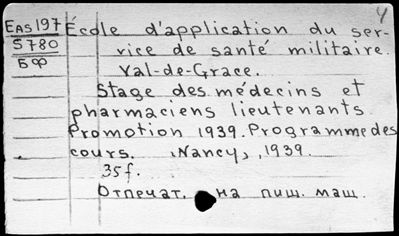 Ч
EAS 197 École d'application du ser-
5780 vice de santé militaire.
БФ Val-de-Grace.
Stage des médecins et
pharmaciens lieutenants.
Promotion 1939. Programme des
cours. Nancy, 1939.
35 f.
Отпечат. на пиш. маш.